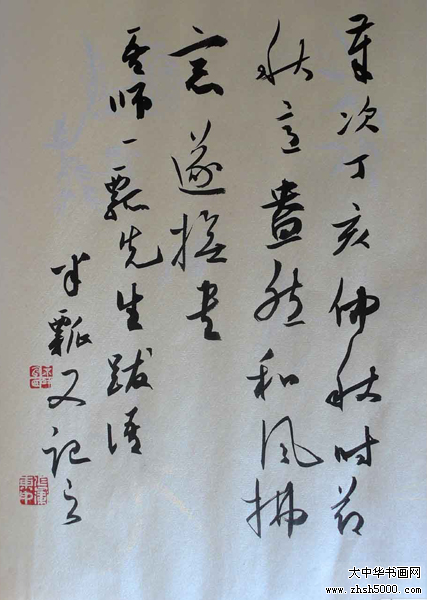 岁次丁亥仲秋时节
秋意盎然和风拂
窓遂抚书
吾师一瓢先生跋语
半瓢又记之
大中华书画网
www.zhsh5000.com